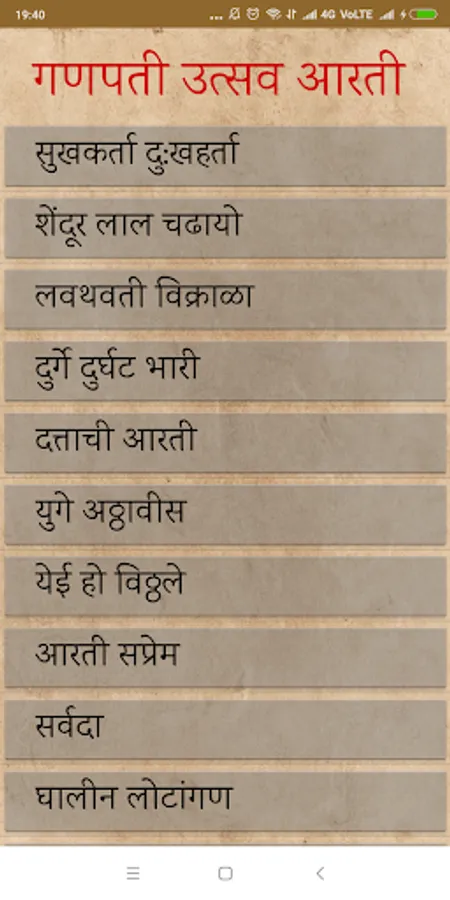 19:40 ... 4G VoLTE
गणपती उत्सव आरती
सुखकर्ता दुःखहर्ता
शेंदूर लाल चढायो
लवथवती विक्राळा
दुर्गे दुर्घट भारी
दत्ताची आरती
युगे अठ्ठावीस
येई हो विठ्ठले
आरती सप्रेम
सर्वदा
घालीन लोटांगण